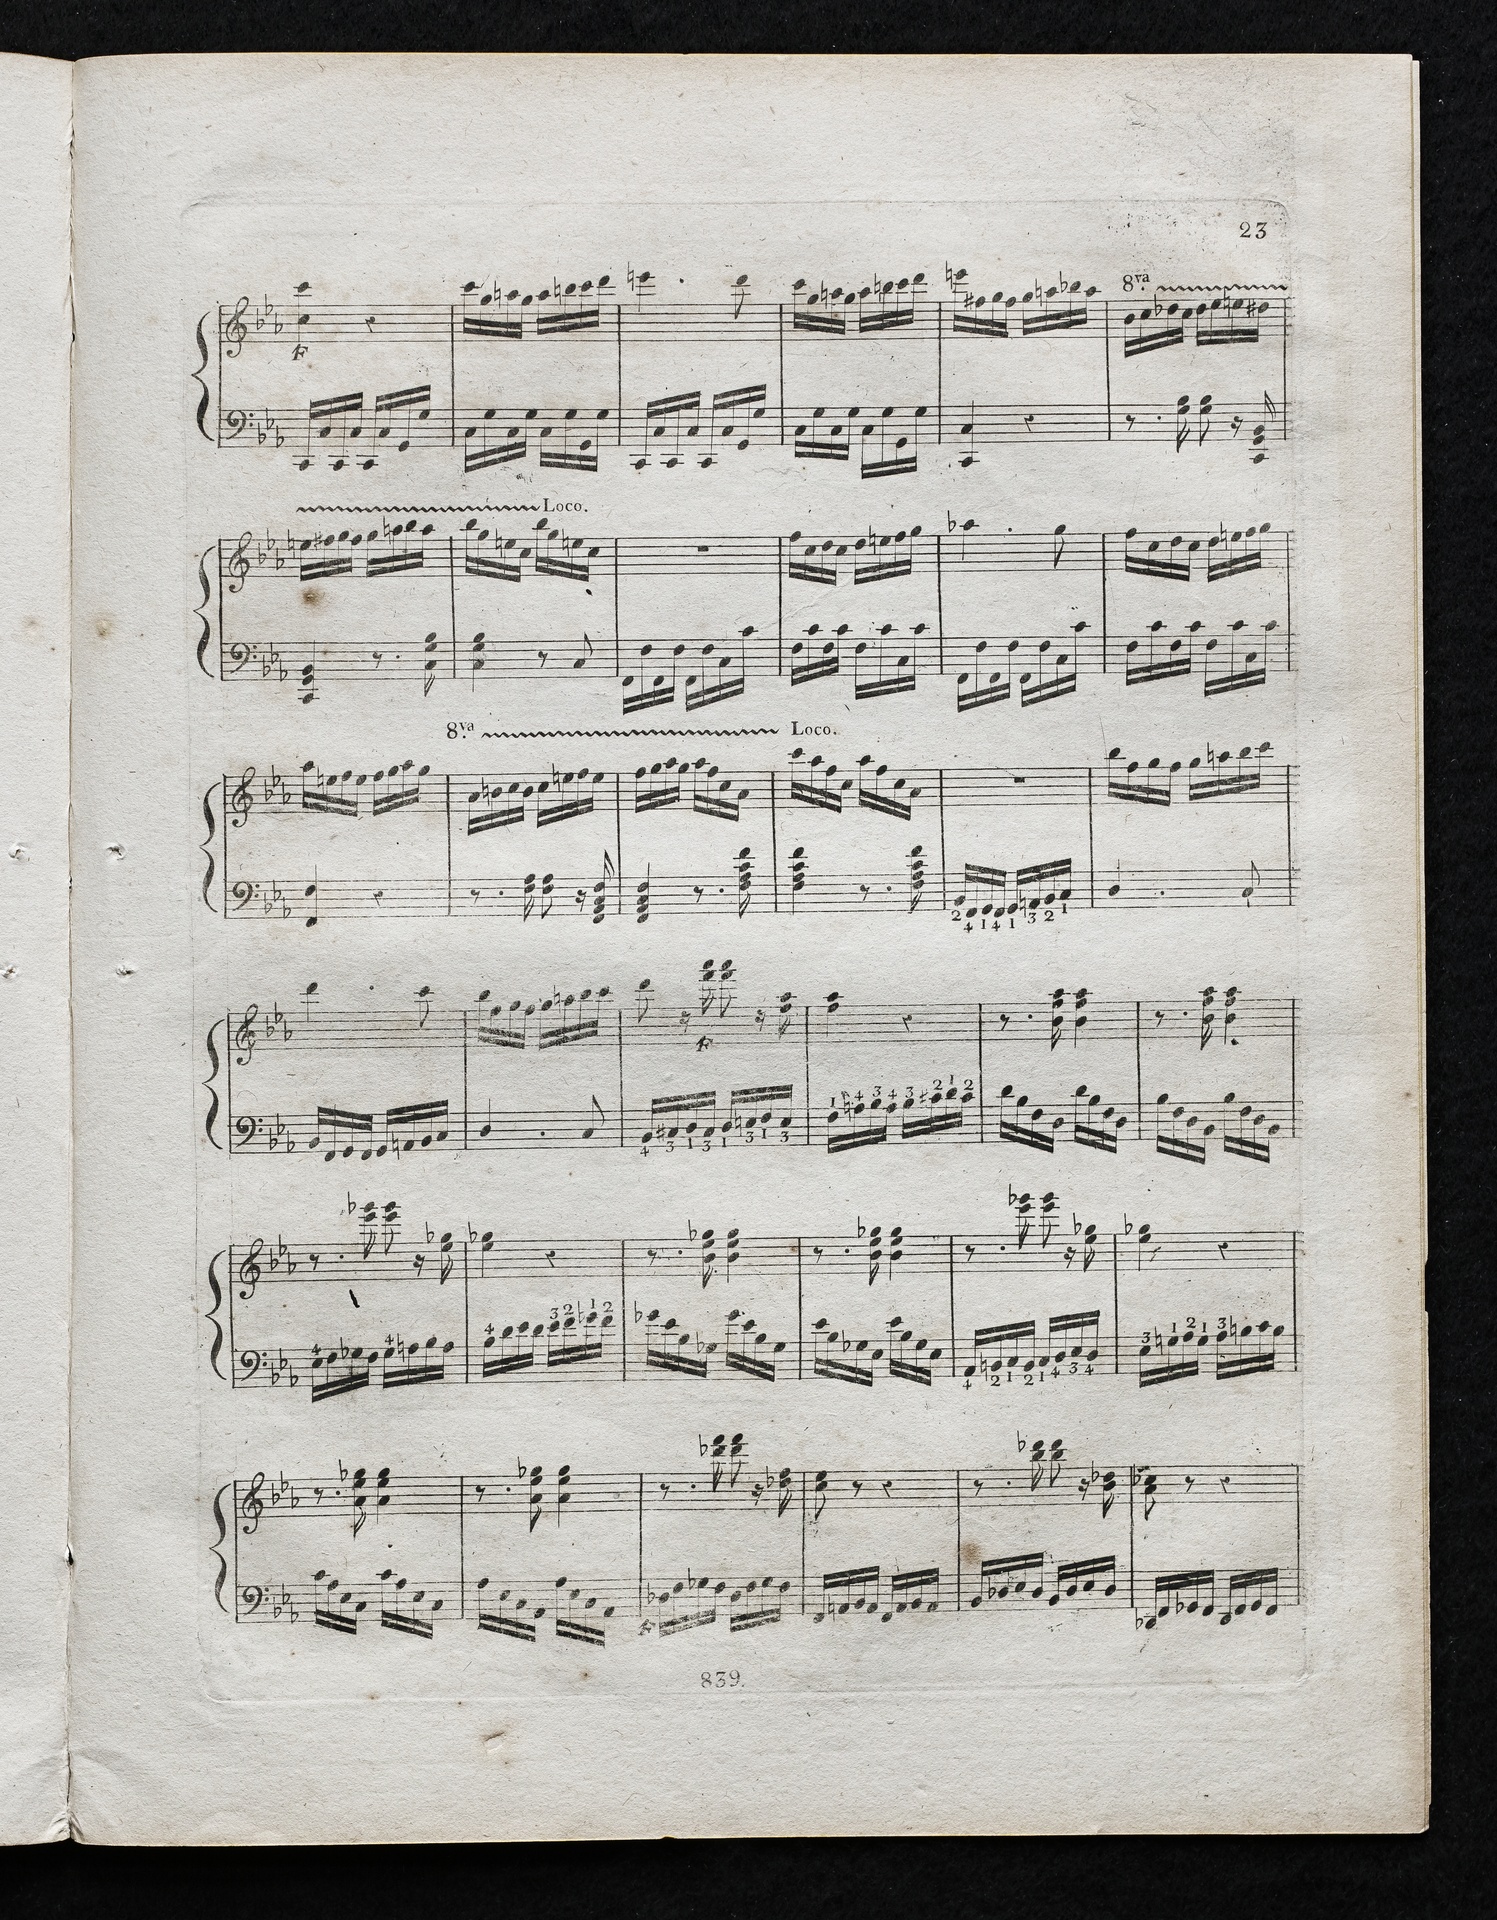 23
F
8va
Loco.
8va
Loco.
2 4 1 4 1 3 2 1
F
1 4 3 4 3 2 1 2
4 3 1 3 1 3 1 3
4 4 4 3 2 1 2
4 2 1 2 1 4 3 4 3 1 2 1 3
F
839.